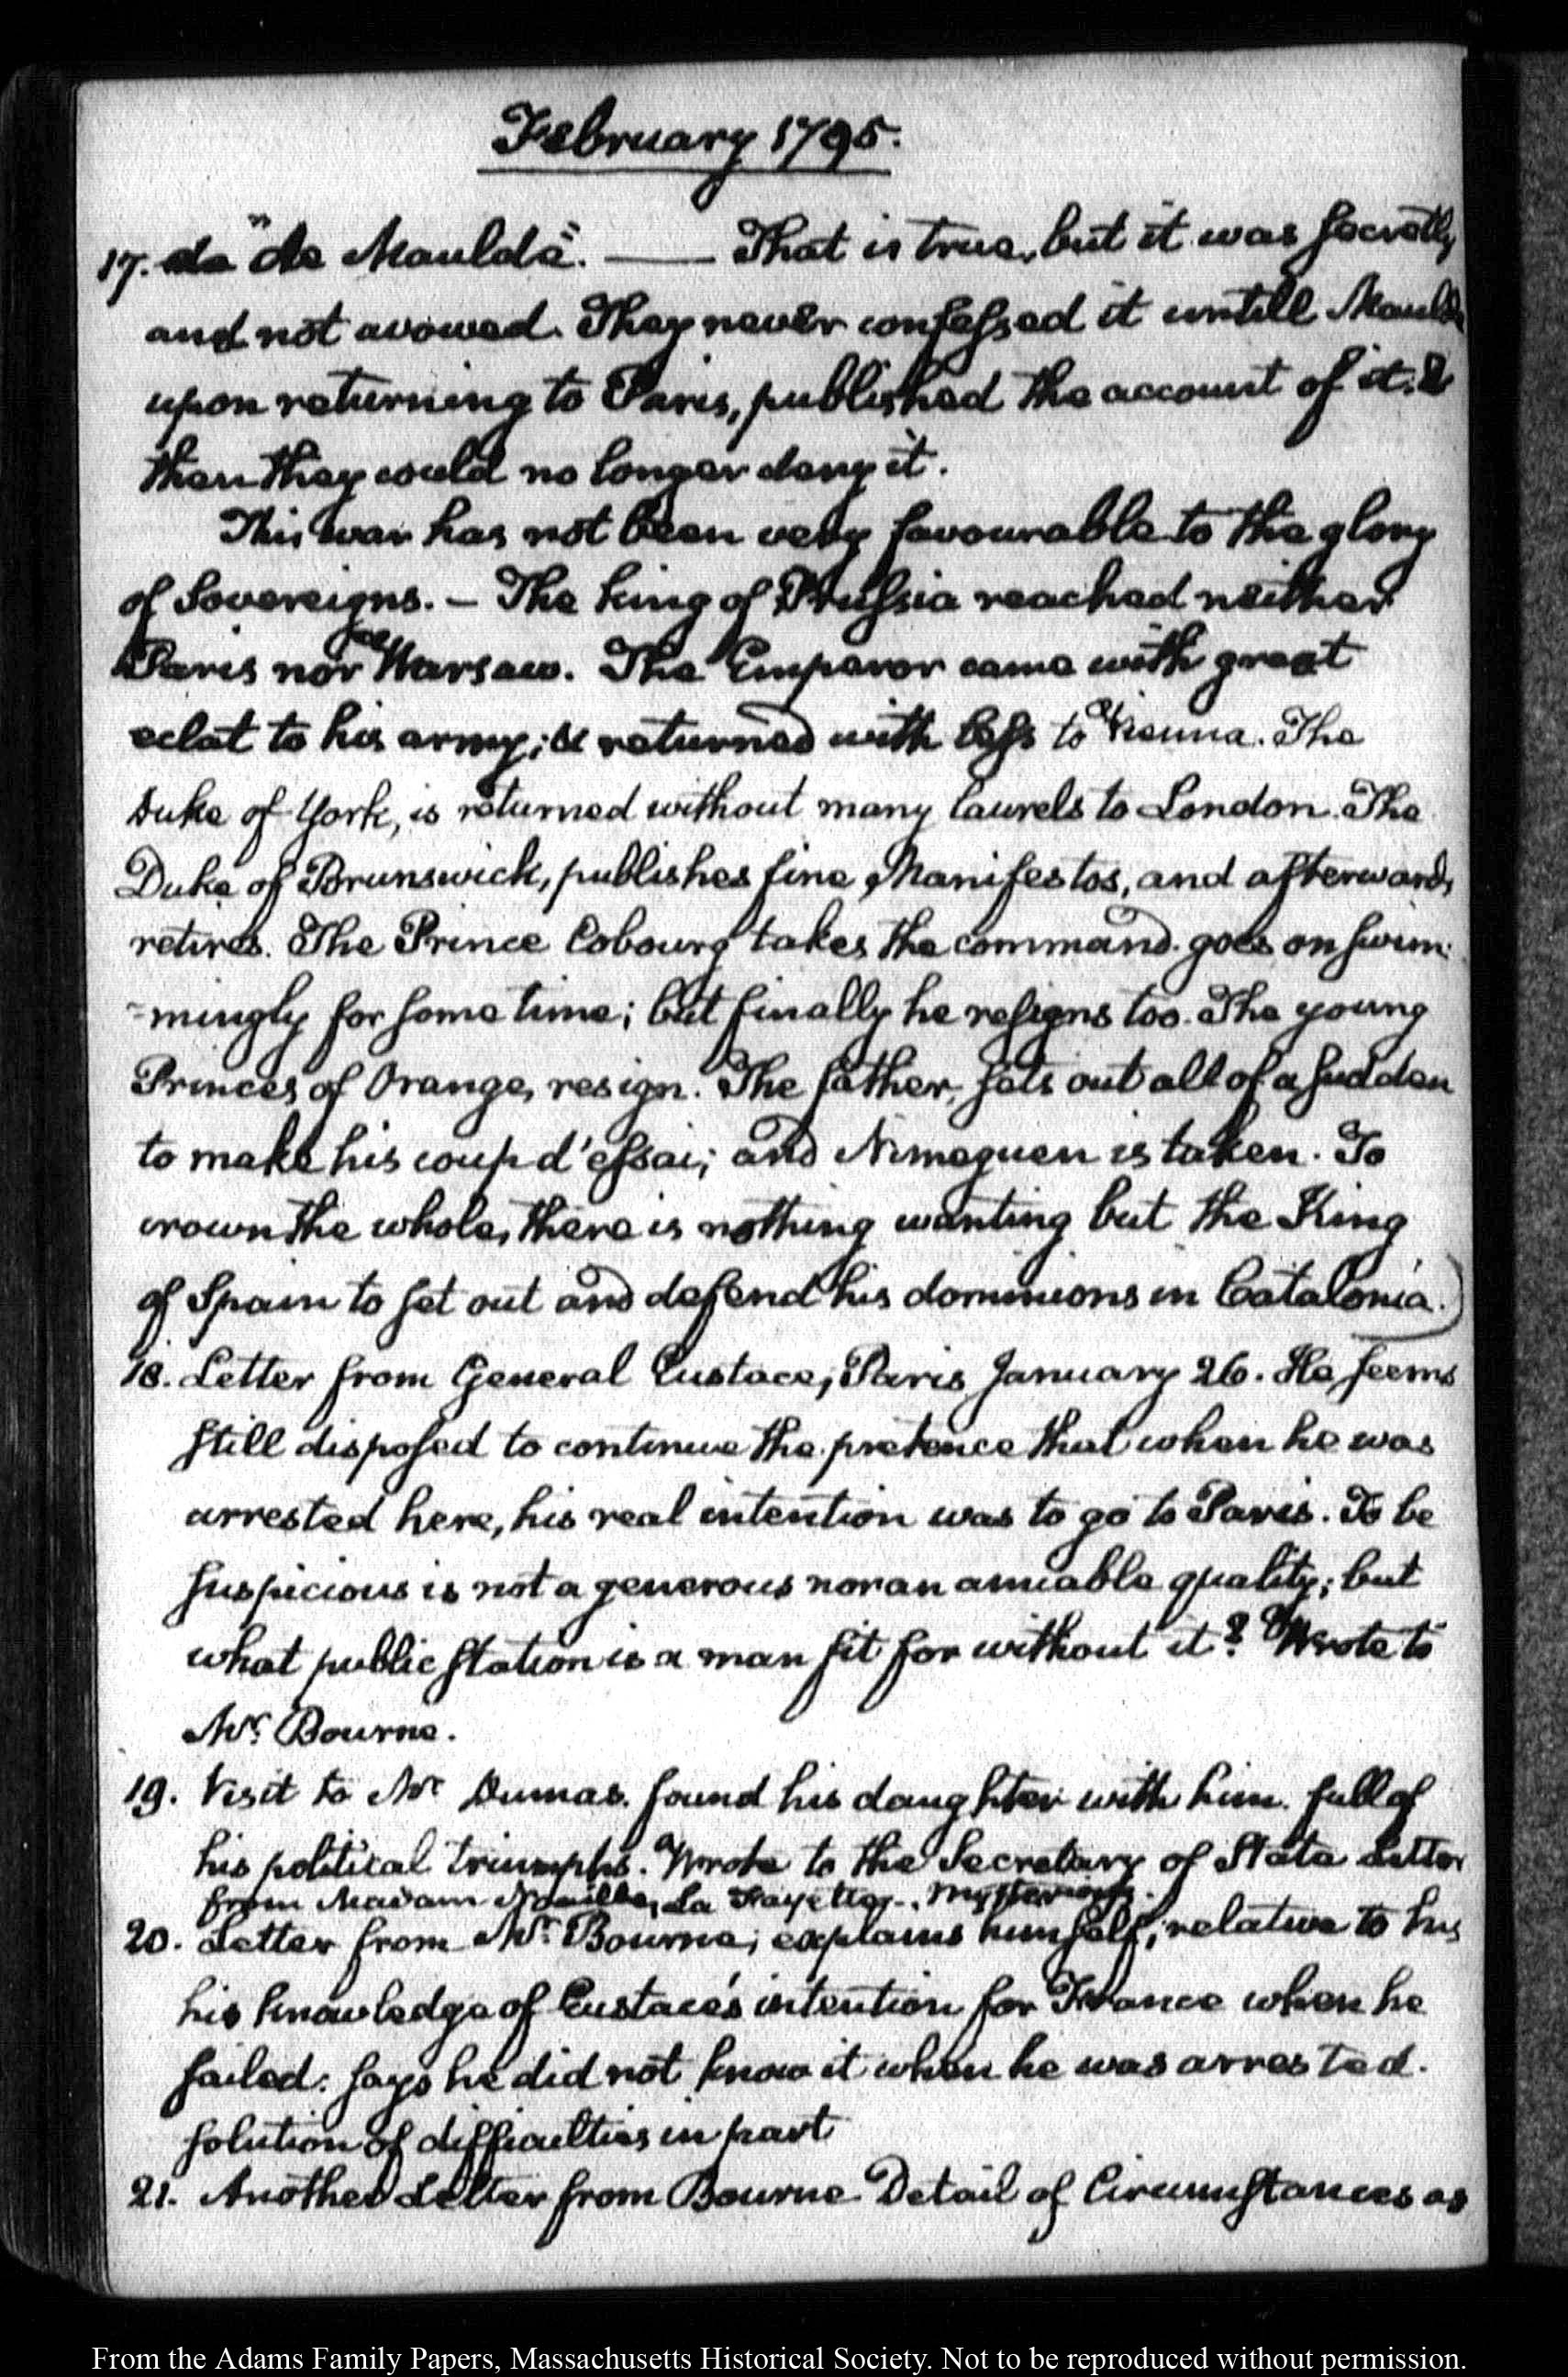 February 1795.
17. de "de Maulde". —— That is true, but it was secretly
and not avowed. They never confessed it untill Maulde
upon returning to Paris, published the account of it. &
then they could no longer deny it.
This war has not been very favourable to the glory
of Sovereigns. – The King of Prussia reached neither
Paris nor Warsaw. The Emperor came with great
eclat to his army; & returned with less to Vienna. The
Duke of York, is returned without many laurels to London. The
Duke of Brunswick, publishes fine Manifestos, and afterwards
retires. The Prince Cobourg takes the command. goes on swim-
-mingly for some time; but finally he resigns too. The young
Princes of Orange, resign. The father, sets out all of a sudden
to make his coup d'essai; and Nimeguen is taken. To
crown the whole, there is nothing wanting but the King
of Spain to set out and defend his dominions in Catalonia.)
18. Letter from General Eustace, Paris January 26. He seems
still disposed to continue the pretence that when he was
arrested here, his real intention was to go to Paris. To be
suspicious is not a generous nor an amiable quality; but
what public station is a man fit for without it? Wrote to
Mr. Bourne.
19. Visit to Mr Dumas. found his daughter with him. full of
his political triumphs. Wrote to the Secretary of State Letter
from Madam Noailles, La Fayette. Mysterious.
20. Letter from Mr. Bourne; explains himself, relative to his
his knowledge of Eustace's intention for France when he
sailed: says he did not know it when he was arrested.
solution of difficulties in part
21. Another Letter from Bourne Detail of Circumstances as
From the Adams Family Papers, Massachusetts Historical Society. Not to be reproduced without permission.